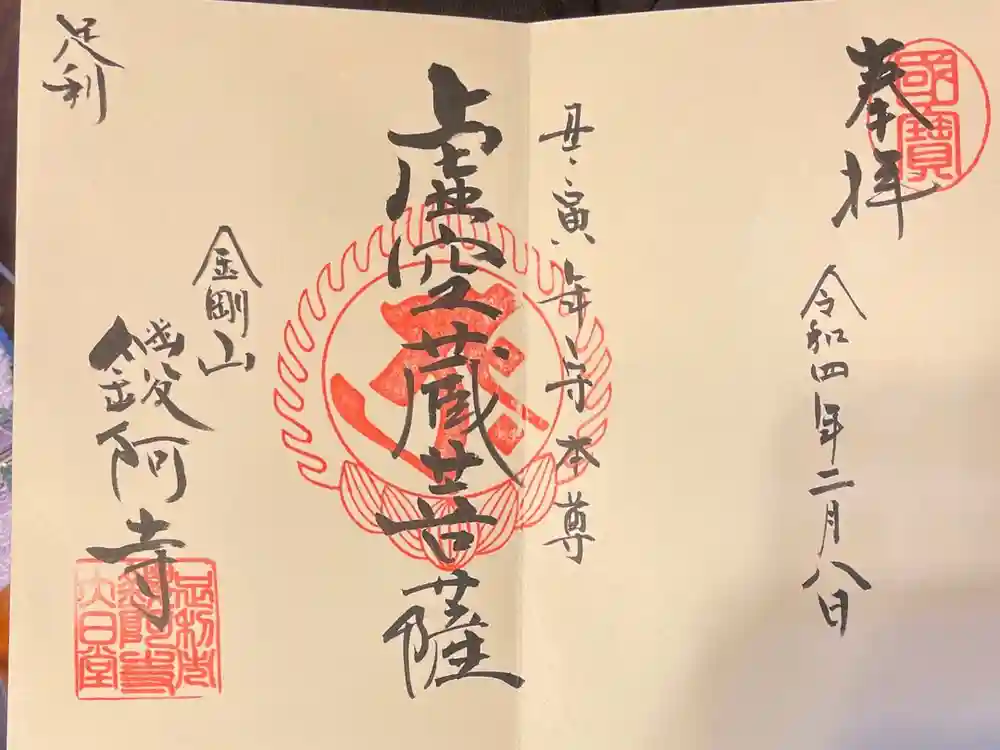 奉拝
國寶
令和四年二月八日
丑・寅年・守本尊
虚空蔵菩薩
足利
金剛山
鑁阿寺
足利市
鑁阿寺
大日堂